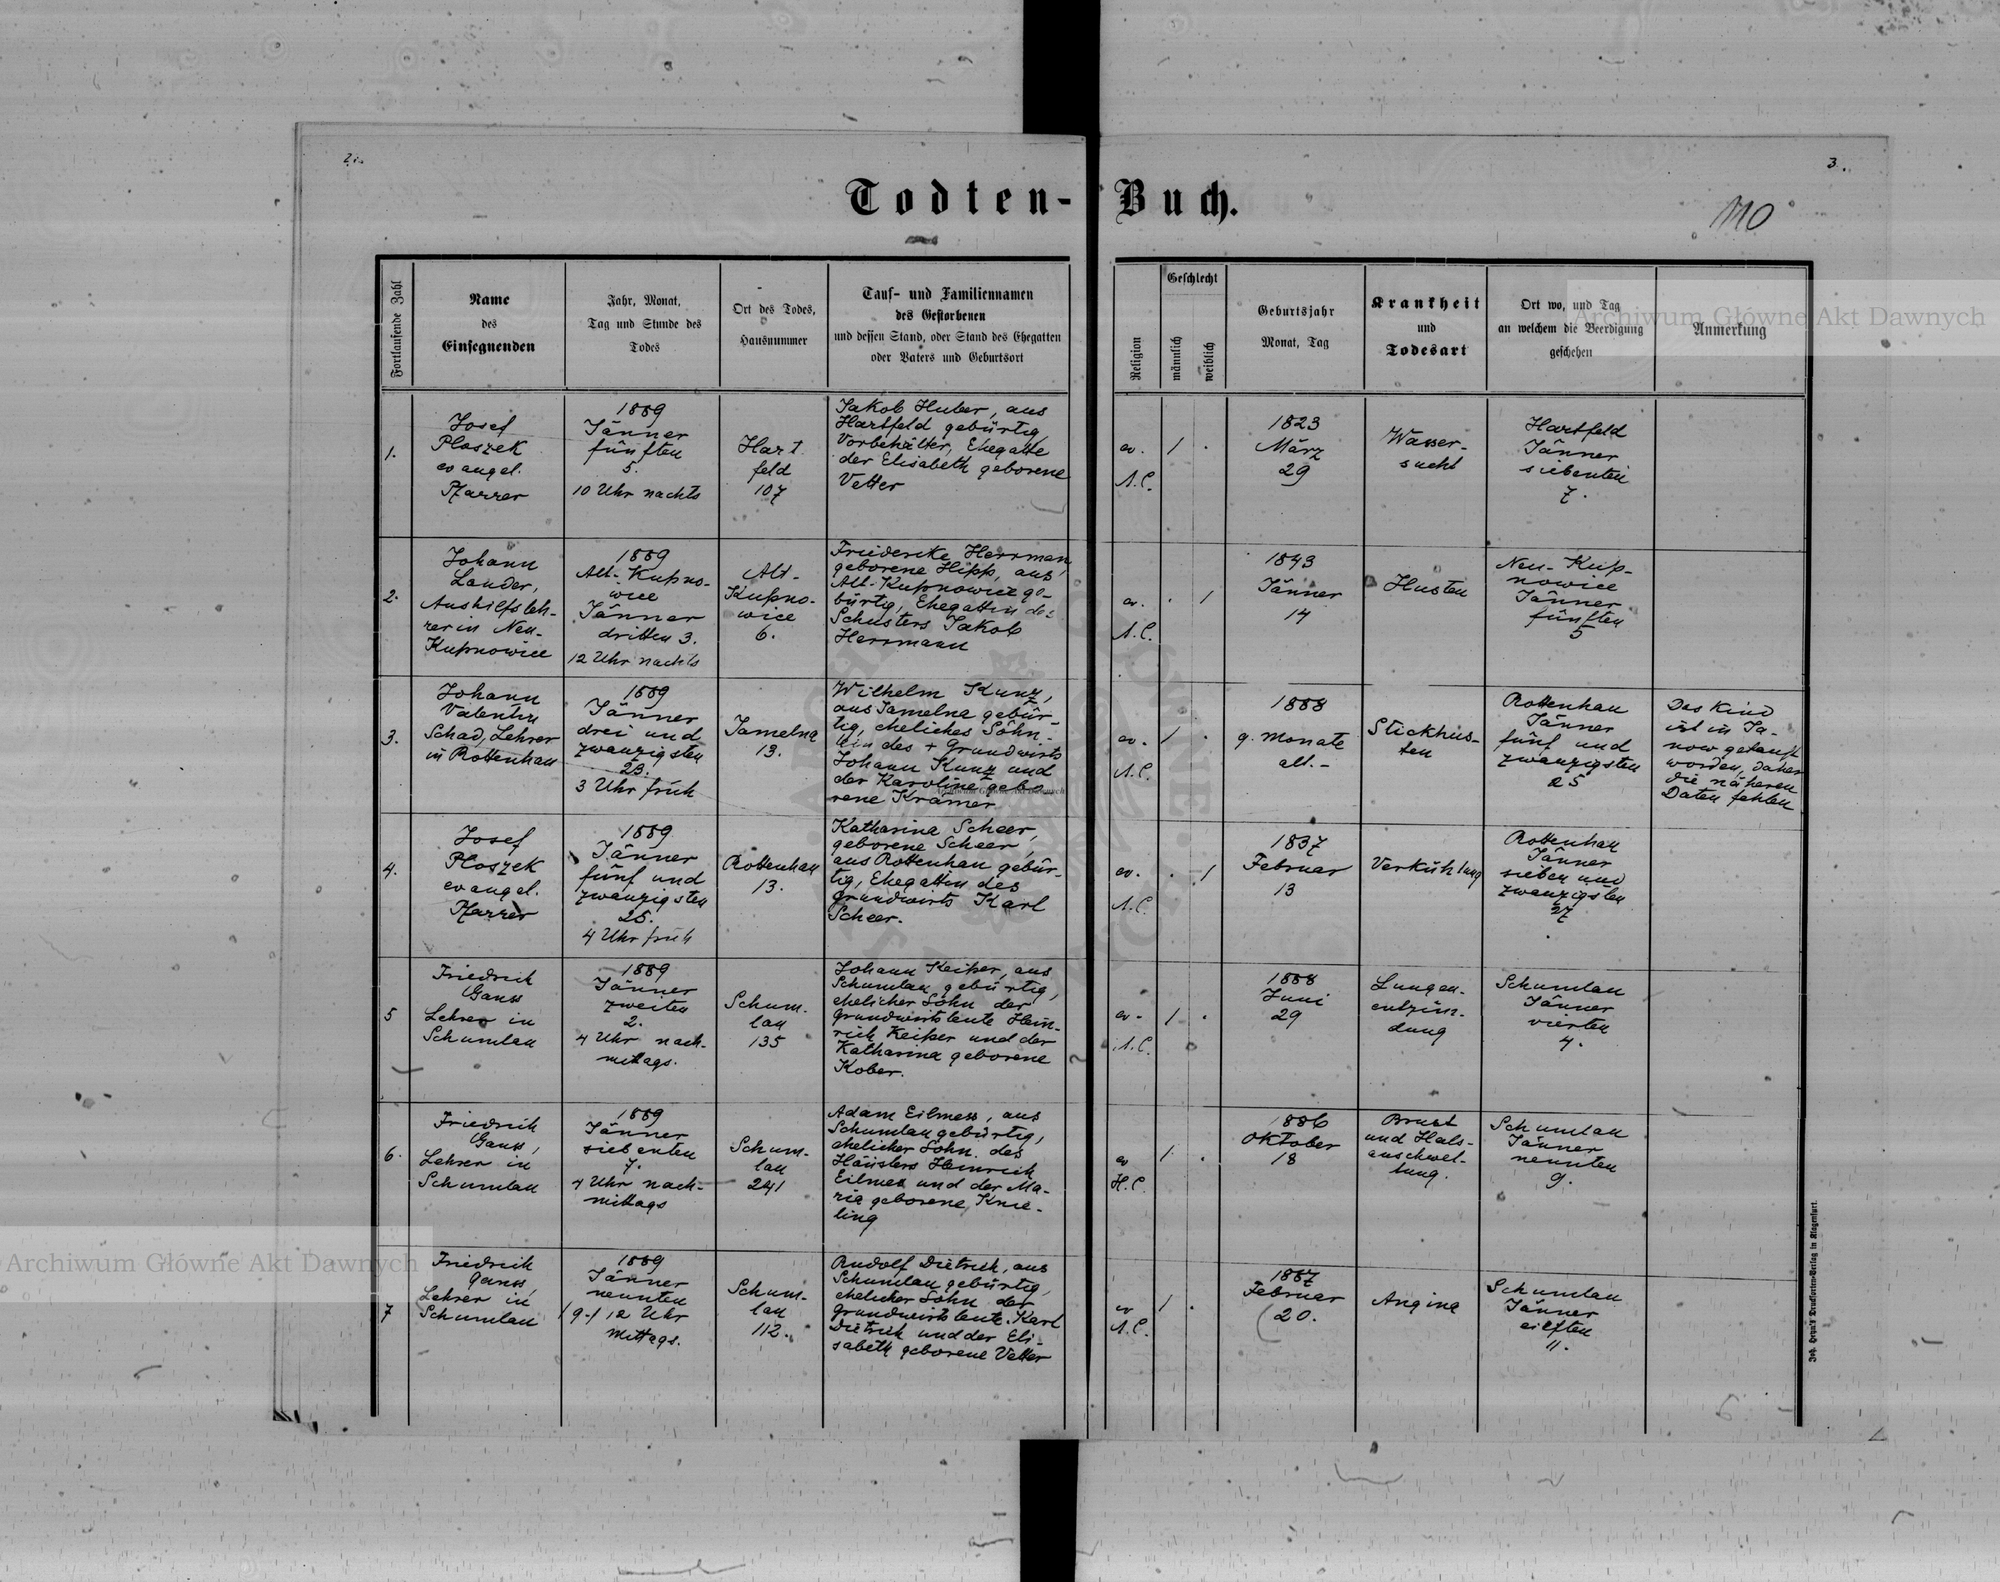 2.
3.
Todten-Buch.
110
Fortlaufende Zahl
Name
des
Einsegnenden
Jahr, Monat,
Tag und Stunde des
Todes
Ort des Todes,
Hausnummer
Tauf- und Familiennamen
des Gestorbenen
und dessen Stand, oder Stand des Ehegatten
oder Vaters und Geburtsort
Religion
Geschlecht
männlich
weiblich
Geburtsjahr
Monat, Tag
Krankheit
und
Todesart
Ort wo, und Tag
an welchem die Beerdigung
geschehen
Anmerkung
1.
Josef
Ploszek
evangel.
Pfarrer
1889
Jänner
fünften
5.
10 Uhr nachts
Hart
feld
107
Jakob Huber, aus
Hartfeld gebürtig
Vorbehälter, Ehegatte
der Elisabeth geborene
Vetter
ev.
A.C.
1
.
1823
März
29
Wasser-
sucht
Hartfeld
Jänner
siebenten
7.
2.
Johann
Lander,
Aushilfsleh-
rer in Neu-
Kupnowice
1889
Alt-Kupno-
wice
Jänner
dritten 3.
12 Uhr nachts
Alt-
Kupno-
wice
6.
Friedericke Herrman,
geborene Hipp, aus
Alt-Kupnowice ge-
bürtig, Ehegattin des
Schusters Jakob
Herrmann
ev.
A.C.
.
1
1843
Jänner
14
Husten
Neu-Kup-
nowice
Jänner
fünften
5
3.
Johann
Valentin
Schad, Lehrer
in Rottenhan
1889
Jänner
drei und
zwanzigsten
23.
3 Uhr früh
Jamelna
13.
Wilhelm Kunz,
aus Jamelna gebür-
tig, eheliches Söhn-
lein des + Grundwirts
Johann Kunz und
der Karoline gebo
rene Krämer
ev.
A.C.
1
.
1888
9. Monate
alt.-
Stickhus-
ten
Rottenhan
Jänner
fünf und
zwanzigsten
25
Das Kind
ist in Ja-
now getauft
worden, daher
die näheren
Daten fehlen
4.
Josef
Ploszek
evangel.
Pfarrer
1889
Jänner
fünf und
zwanzigsten
25.
4 Uhr früh
Rottenhan
13.
Katharina Scheer,
geborene Scheer
aus Rottenhan gebür-
tig, Ehegattin des
Grundwirts Karl
Scheer.
ev.
A.C.
.
1
1837
Februar
13
Verkühlung
Rottenhan
Jänner
sieben und
zwanzigsten
27
5
Friedrich
Gans
Lehrer in
Schumlau
1889
Jänner
zweiten
2.
4 Uhr nach-
mittags.
Schum-
lau
135
Johann Keiper, aus
Schumlau gebürtig,
ehelicher Sohn der
Grundwirtsleute Hein-
rich Keiper und der
Katharina geborene
Kober.
ev-
A.C.
1
.
1888
Juni
29
Lungen-
entzün-
dung
Schumlau
Jänner
vierten
4.
6.
Friedrich
Gans,
Lehrer in
Schumlau
1889
Jänner
siebenten
7.
4 Uhr nach-
mittags
Schum-
lau
241
Adam Eilmes, aus
Schumlau gebürtig,
ehelicher Sohn des
Häuslers Heinrich
Eilmes und der Ma-
ria geborene Knie-
ling
ev
H.C.
1
.
1886
Oktober
18
Brust
und Hals-
anschwel-
lung.
Schumlau
Jänner
neunten
9.
7
Friedrich
Gans,
Lehrer in
Schumlau
1889
Jänner
neunten
/9./ 12 Uhr
mittags.
Schum-
lau
112.
Rudolf Dietrich, aus
Schumlau gebürtig,
ehelicher Sohn der
Grundwirtsleute Karl
Dietrich und der Eli-
sabeth geborene Vetter
ev
A.C.
1
.
1887
Februar
20.
Angina
Schumlau
Jänner
eilften
11.
Joh. Heyn's Drucksorten-Verlag in Klagenfurt.
Archiwum Główne Akt Dawnych
Archiwum Główne Akt Dawnych
Archiwum Główne Akt Dawnych